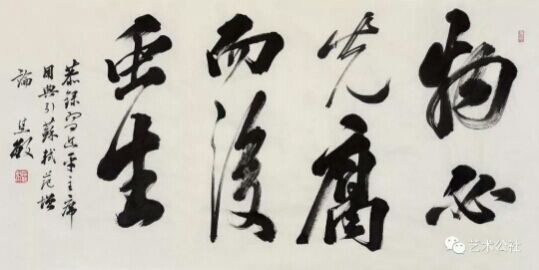 物必
先腐
而後
虫生
恭錄習近平主席
用典引蘇軾范增
論
艺术公社